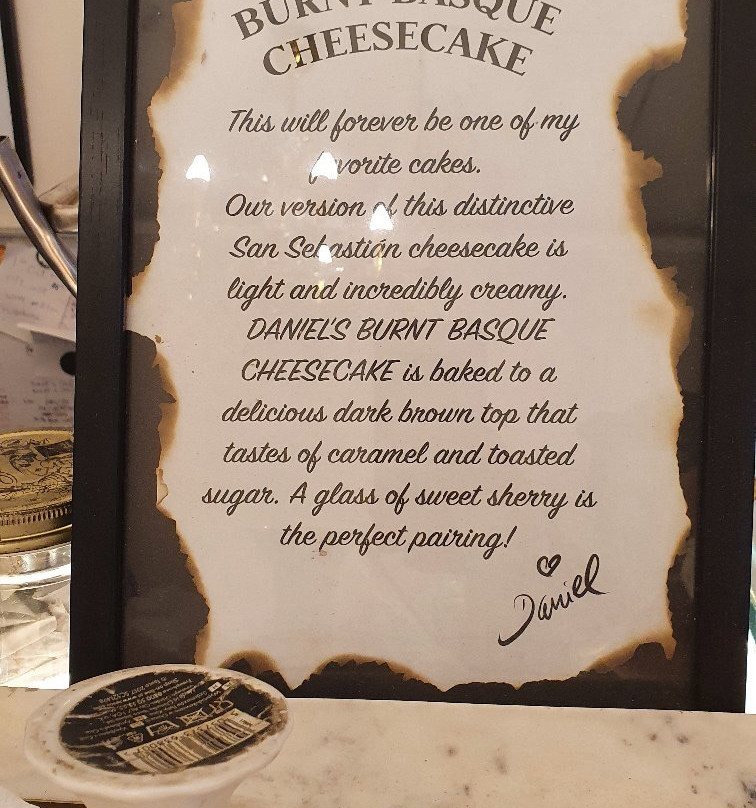 BURNT BASQUE
CHEESECAKE
This will forever be one of my
favorite cakes.
Our version of this distinctive
San Sebastián cheesecake is
light and incredibly creamy.
DANIEL'S BURNT BASQUE
CHEESECAKE is baked to a
delicious dark brown top that
tastes of caramel and toasted
sugar. A glass of sweet sherry is
the perfect pairing!
Daniel